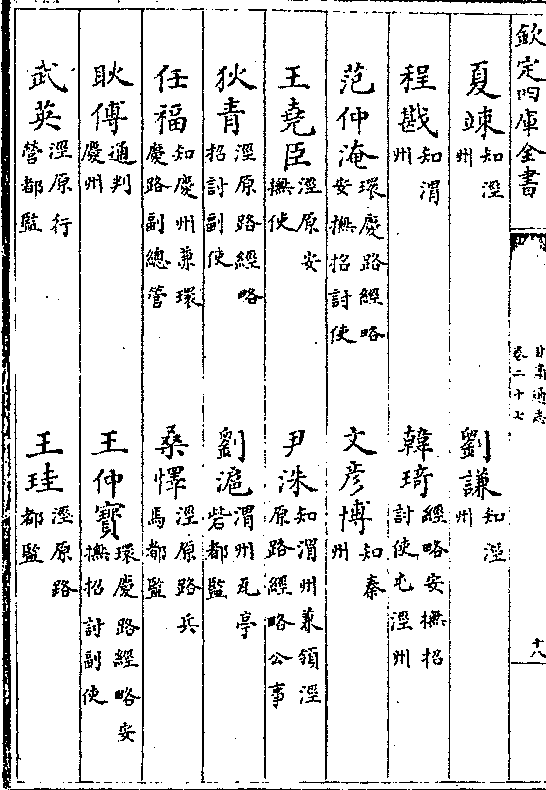 欽定四庫全書
甘肅通志
卷二十七
十八
夏竦知涇州
劉謙知涇州
程戡知渭州
韓琦經略安撫招討使屯涇州
范仲淹環慶路經略安撫招討使
文彦博知秦州
王堯臣涇原安撫使
尹洙知渭州兼領涇原路經略公事
狄青涇原路經略招討副使
劉滬渭州瓦亭砦都監
任福知慶州兼環慶路副總管
桑懌涇原路兵馬都監
耿傅通判慶州
王仲寶環慶路經略安撫招討副使
武英涇原行營都監
王珪涇原路都監